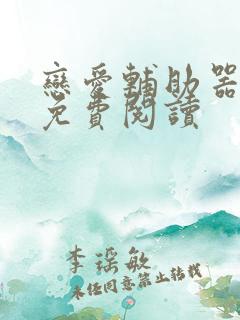 戀愛輔助器
免費閱讀
李瑶敏
未经同意禁止转载